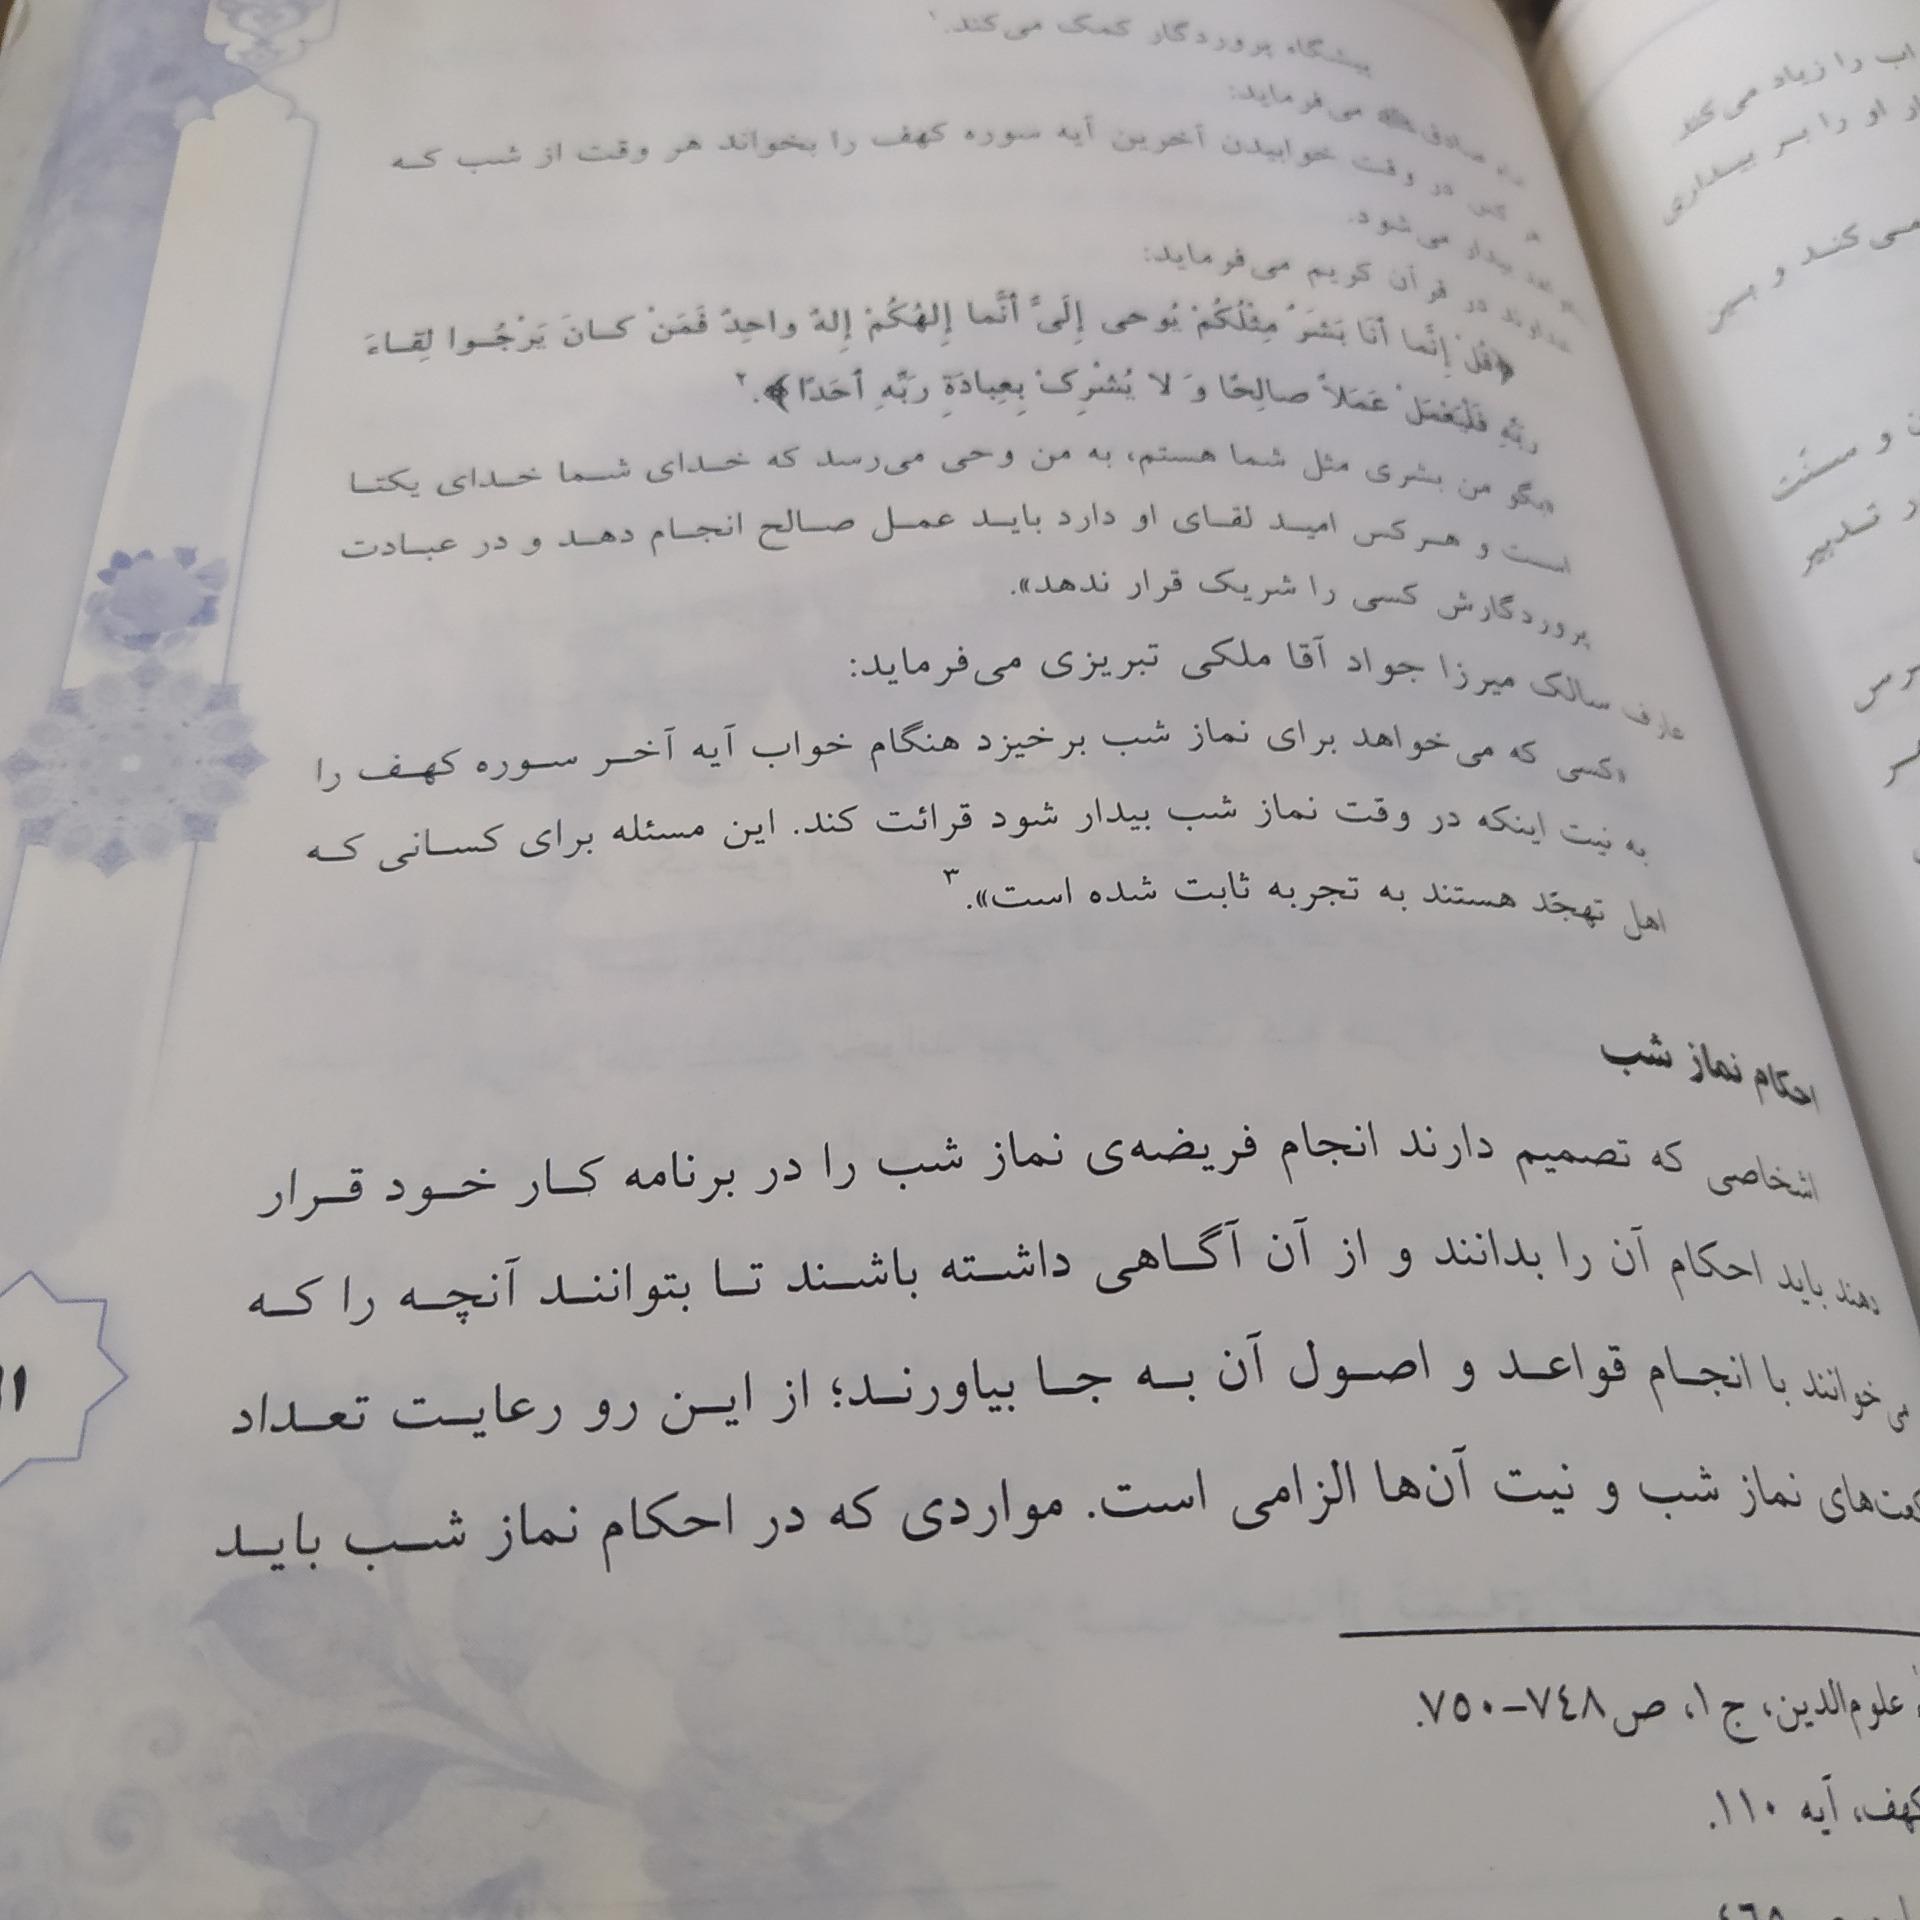 پیشگاه پروردگار کمک می‌کند.۱
صادق می‌فرماید:
هر کس در وقت خوابیدن آخرین آیه سوره کهف را بخواند هر وقت از شب که
بیدار می‌شود.
خداوند در قرآن کریم می‌فرماید:
﴿قُلْ إِنَّما أَنَا بَشَرٌ مِثْلُكُمْ يُوحى إِلَيَّ أَنَّما إِلهُكُمْ إِلهٌ واحِدٌ فَمَنْ كـانَ يَرْجُـوا لِقـاءَ
رَبِّهِ فَلْيَعْمَلْ عَمَلاً صالِحًا وَ لا يُشْرِكْ بِعِبادَةِ رَبِّهِ أَحَدًا﴾.۲
«بگو من بشری مثل شما هستم، به من وحی می‌رسد که خـدای شـما خـدای یکتـا
اسـت و هـرکس امیـد لقـای او دارد بایـد عمـل صـالح انجـام دهـد و در عبـادت
پروردگارش کسی را شریک قرار ندهد».
عارف سالک میرزا جواد آقا ملکی تبریزی می‌فرماید:
«کسی که می‌خواهد برای نماز شب برخیزد هنگام خواب آیه آخـر سـوره کهـف را
به نیت اینکه در وقت نماز شب بیدار شود قرائت کند. این مسئله برای کسـانی کـه
اهل تهجّد هستند به تجربه ثابت شده است».۳
احکام نماز شب
اشخاصی که تصمیم دارند انجام فریضه‌ی نماز شب را در برنامه کـار خـود قـرار
دهند باید احکام آن را بدانند و از آن آگـاهی داشـته باشـند تـا بتواننـد آنچـه را کـه
می‌خوانند با انجـام قواعـد و اصـول آن بـه جـا بیاورنـد؛ از ایـن رو رعایـت تعـداد
رکعت‌های نماز شب و نیت آن‌ها الزامی است. مواردی که در احکام نماز شـب بایـد
علوم‌الدین، ج۱، ص۷۴۸–۷۵۰.
کهف، آیه ۱۱۰.
اب را زیاد می‌کند.
او را بـر بیـداری
می‌کنـد و
و سـنّت
تـدبیر